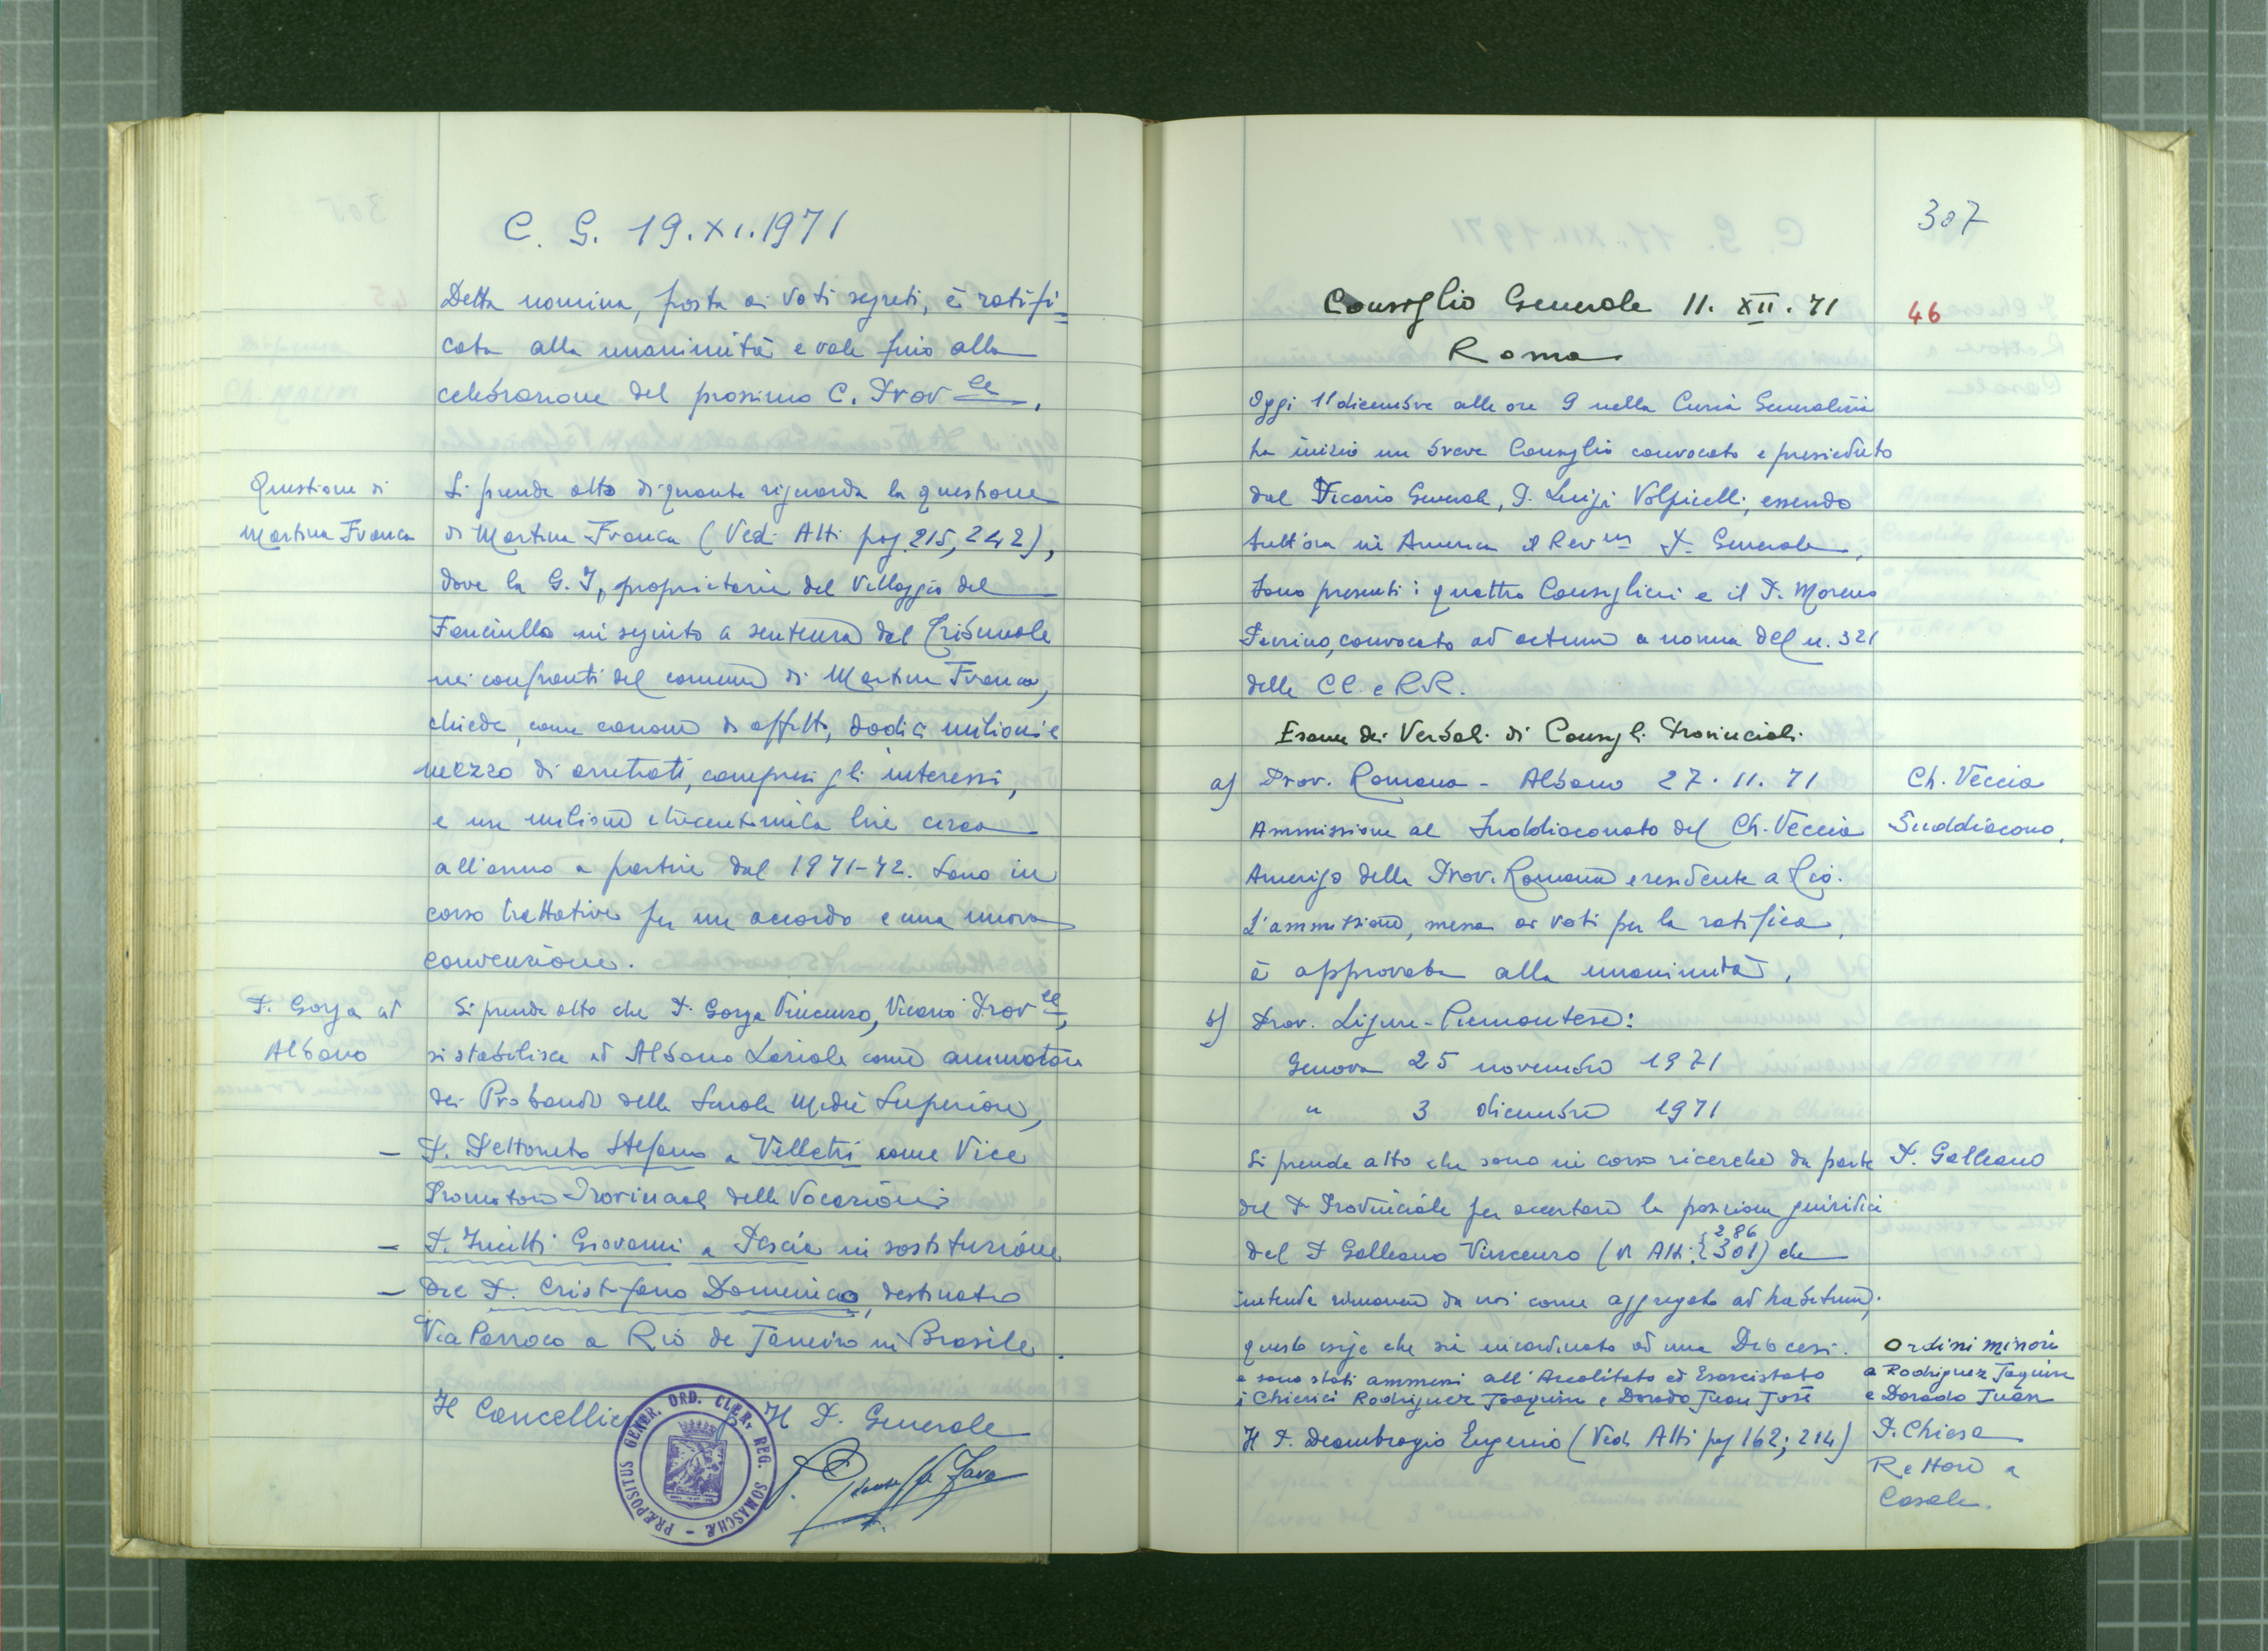 C. G. 19.XI.1971
Detta nomina, posta ai voti segreti, è ratifi=
cata alla unanimità e vale fino alla
celebrazione del prossimo C. Prov.le.
Questione di
Martina Franca
Si prende atto di quanto riguarda la questione
di Martina Franca (Vedi Atti pag. 215, 242),
dove la G. I, proprietaria del Villaggio del
Fanciullo in seguito a sentenza del Tribunale
nei confronti del comune di Martina Franca,
chiede, come canone di affitto, dodici milioni e
mezzo di arretrati, compresi gli interessi,
e un milione lire circa
all'anno a partire dal 1971-72. Sono in
corso trattative per un accordo e una nuova
convenzione.
P. Gorga ad
Albano
Si prende atto che P. Gorga Vincenzo, Vicario Prov.le,
si stabilisce ad Albano Laziale come animatore
dei Probandi delle Scuole Medie Superiori,
– P. Pettoruto Stefano a Velletri come Vice
Promotore Provinciale delle Vocazioni
– P. Giovanni a Pescia in sostituzione
– Del P. Cristofano Domenico, destinato
Via Parroco a Rio de Janeiro in Brasile.
Il Cancelliere
p. Il P. Generale
PRÆPOSITUS GENER. ORD. CLER. REG. SOMASCHÆ
307
Consiglio Generale 11. XII. 71
46
Roma
Oggi 11 dicembre alle ore 9 nella Curia Generalizia
ha inizio un breve Consiglio convocato e presieduto
dal Vicario Generale, P. Luigi Volpicelli, essendo
tutt'ora in America il Rev.mo P. Generale.
Sono presenti i quattro Consiglieri e il P. Moreno
convocato ad actum a norma del n. 321
delle CC. e RR.
Esame dei Verbali di Consigli Provinciali
a) Prov. Romana - Albano 27. 11. 71
Ch. Veccia
Suddiacono.
Ammissione al Suddiaconato del Ch. Veccia
Amerigo della Prov. Romana e residente a Rio.
L'ammissione, messa ai voti per la ratifica,
è approvata alla unanimità.
b) Prov. Ligure-Piemontese:
Genova 25 novembre 1971
" 3 dicembre 1971
Si prende atto che sono in corso ricerche da parte
P. Galleano
del P. Provinciale per accertare la posizione giuridica
del P. Galleano Vincenzo (V. Atti: 286, 301) che
intende rimanere da noi come aggregato ad habitum;
questo esige che sia incardinato ad una Diocesi.
Ordini minori
a Rodriguez Joaquin
e Dorado Juan
e sono stati ammessi all'Accolitato ed Esorcistato
i Chierici Rodriguez Joaquin e Dorado Juan José
Il P. Deambrogio Eugenio (Vedi Atti pag 162; 214)
P. Chiesa
Rettore a
Casale.